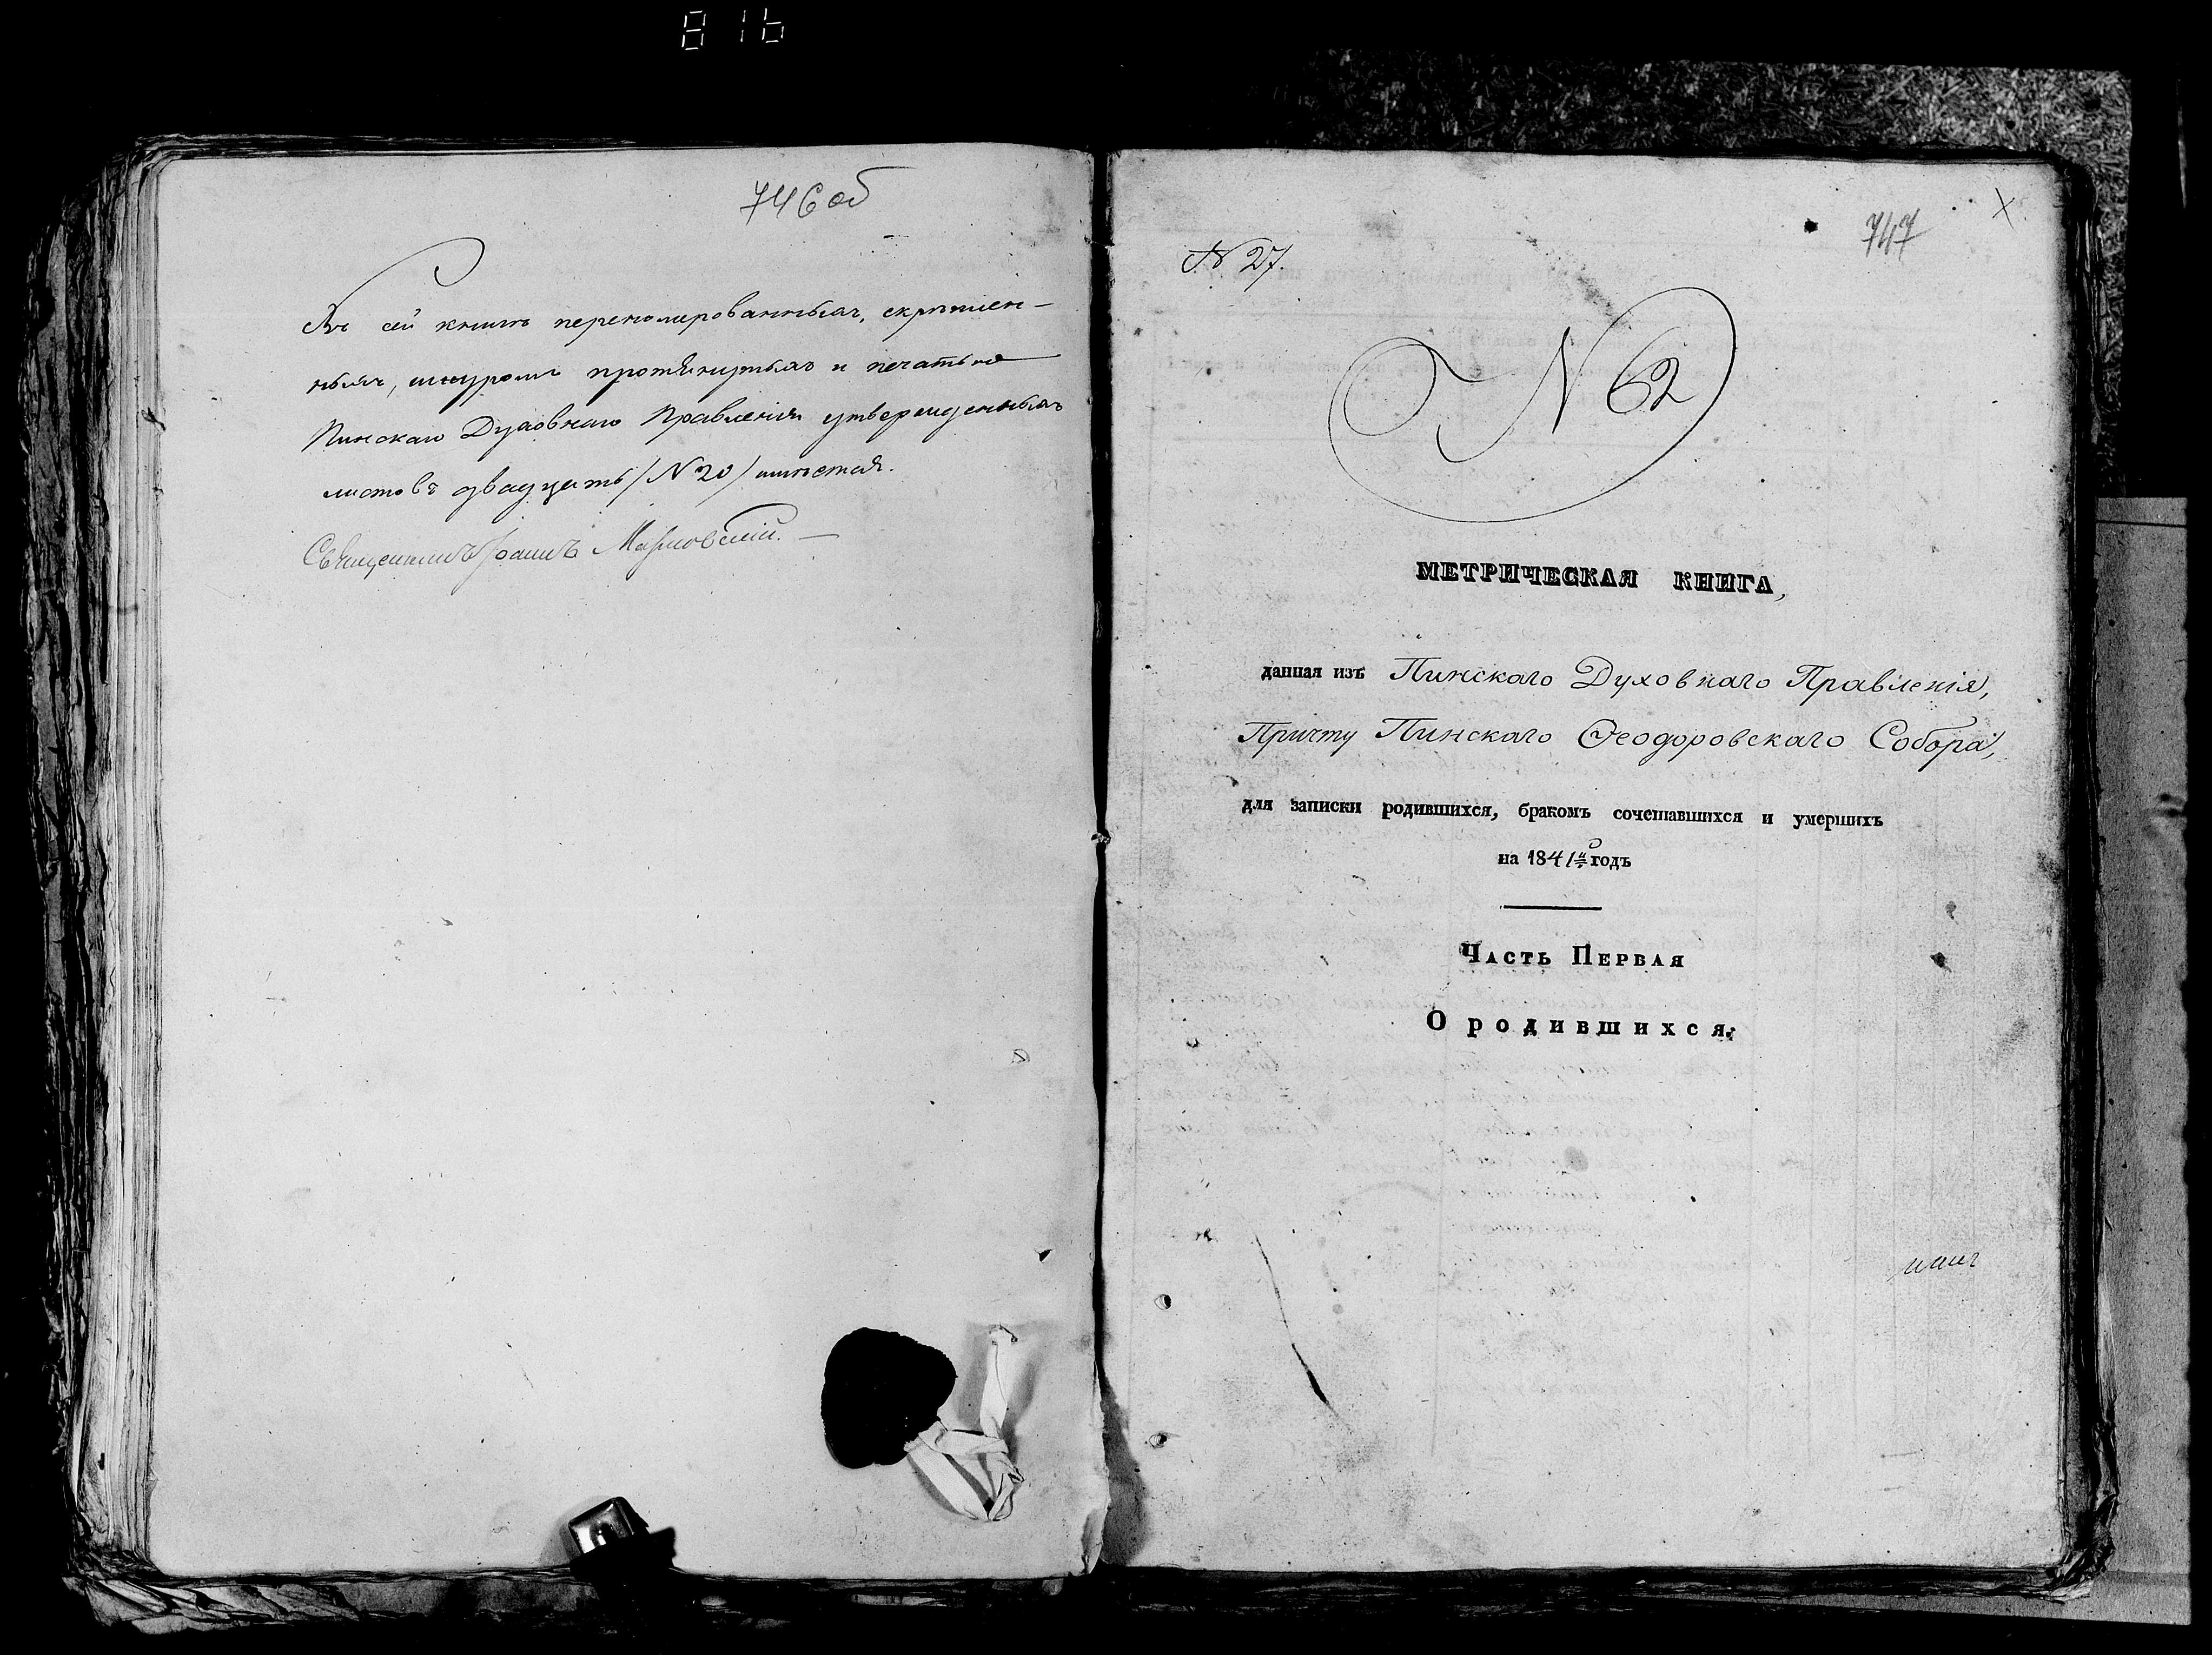 816
746 об
Въ сей книгѣ переномерованныхъ, скрѣплен-
ныхъ, шнуромъ протянутыхъ и печатью
Пинскаго Духовнаго Правленія утвержденныхъ
листовъ двадцать /№ 20/ имѣется.
Священникъ Іоаннъ
747
№ 27.
№ 62
МЕТРИЧЕСКАЯ КНИГА,
данная изъ Пинскаго Духовнаго Правленія,
Причту Пинскаго Ѳеодоровскаго Собора,
для записки родившихся, бракомъ сочетавшихся и умершихъ
на 1841й годъ
Часть Первая
О родившихся.